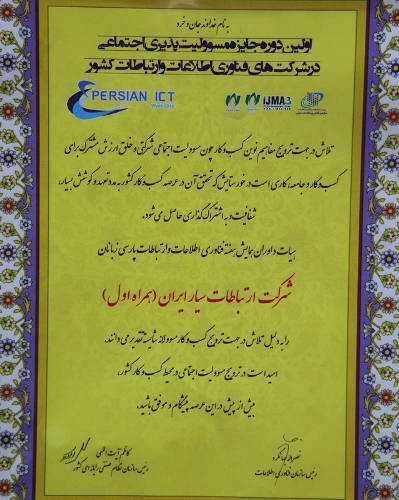 به نام خداوند جان و خرد
اولین دوره جایزه مسوولیت پذیری اجتماعی
در شرکت های فناوری اطلاعات و ارتباطات کشور
PERSIAN ICT
IJMA3
تلاش در جهت ترویج مفاهیم نوین کسب و کار چون مسوولیت اجتماعی شرکتی و خلق ارزش مشترک برای
کسب و کار و جامعه، کاری است در خور ستایش که تحقق آن در عرصه کسب و کار کشور به مدد تعهد و کوشش بسیار،
شفافیت و به اشتراک گذاری حاصل می شود.
هیات داوران همایش هفته فناوری اطلاعات و ارتباطات پارسی زبانان
شرکت ارتباطات سیار ایران (همراه اول)
را به دلیل تلاش در جهت ترویج کسب و کار مسوولانه شایسته تقدیر می دانند.
امید است در ترویج مسوولیت اجتماعی در محیط کسب و کار کشور،
بیش از پیش در این عرصه پیشگام و موفق باشید.
نصراله جهانگرد
رئیس سازمان فناوری اطلاعات
کاظم آیت اللهی
رئیس سازمان نظام صنفی رایانه ای کشور